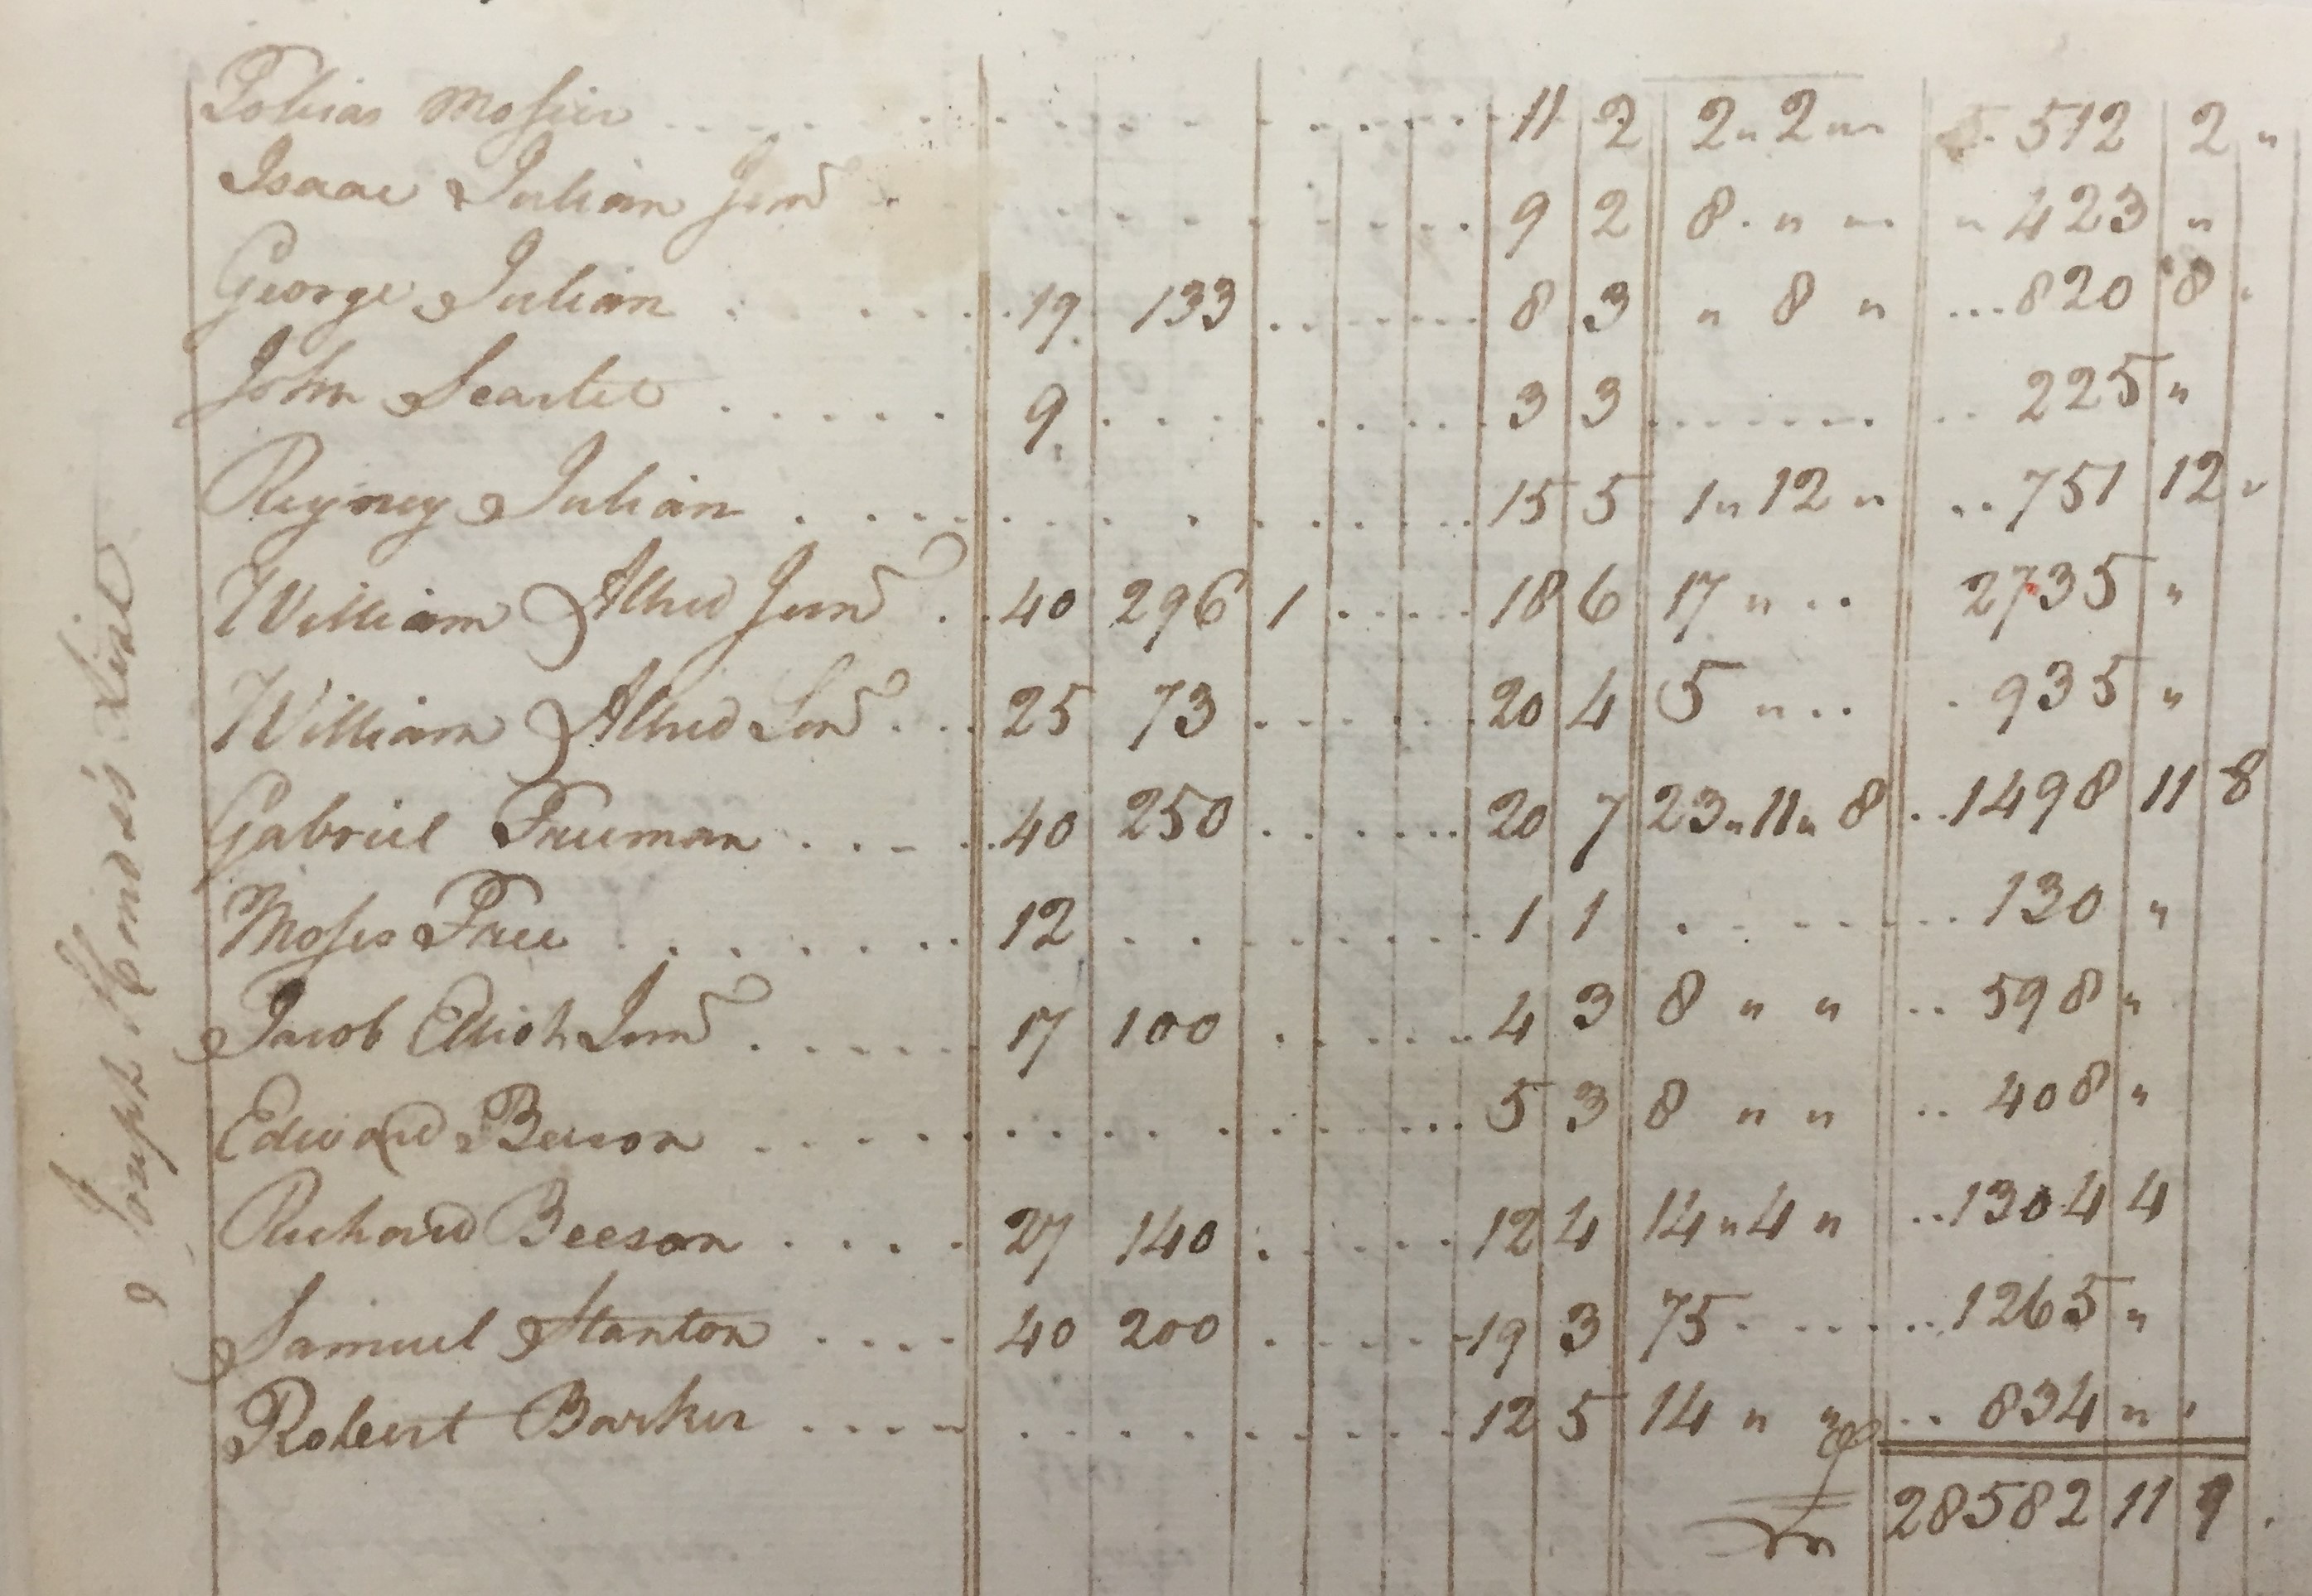 Joseph Hinds's List
Tobias Mosier 11 2 2 " 2 " " 512 2 "
Isaac Julian Junr 9 2 8 " " " 423 "
George Julian 19 133 8 3 " 8 " 820 8
John Scarlet 9 3 3 225 "
Reyney Julian 15 5 1 " 12 " 751 12 "
William Allred Junr 40 296 1 18 6 17 " 2735 "
William Allred Senr 25 73 20 4 5 " 935 "
Gabriel Freeman 40 250 20 7 23 " 11 " 8 1498 11 8
Moses Free 12 1 1 130 "
Jacob Elliot Junr 17 100 4 3 8 " " 598 "
Edward Beeson 5 3 8 " " 408 "
Richard Beeson 27 140 12 4 14 " 4 " 1304 4
Samuel Stanton 40 200 19 3 75 1265 "
Robert Barker 12 5 14 " " 834 " "
28582 11 9